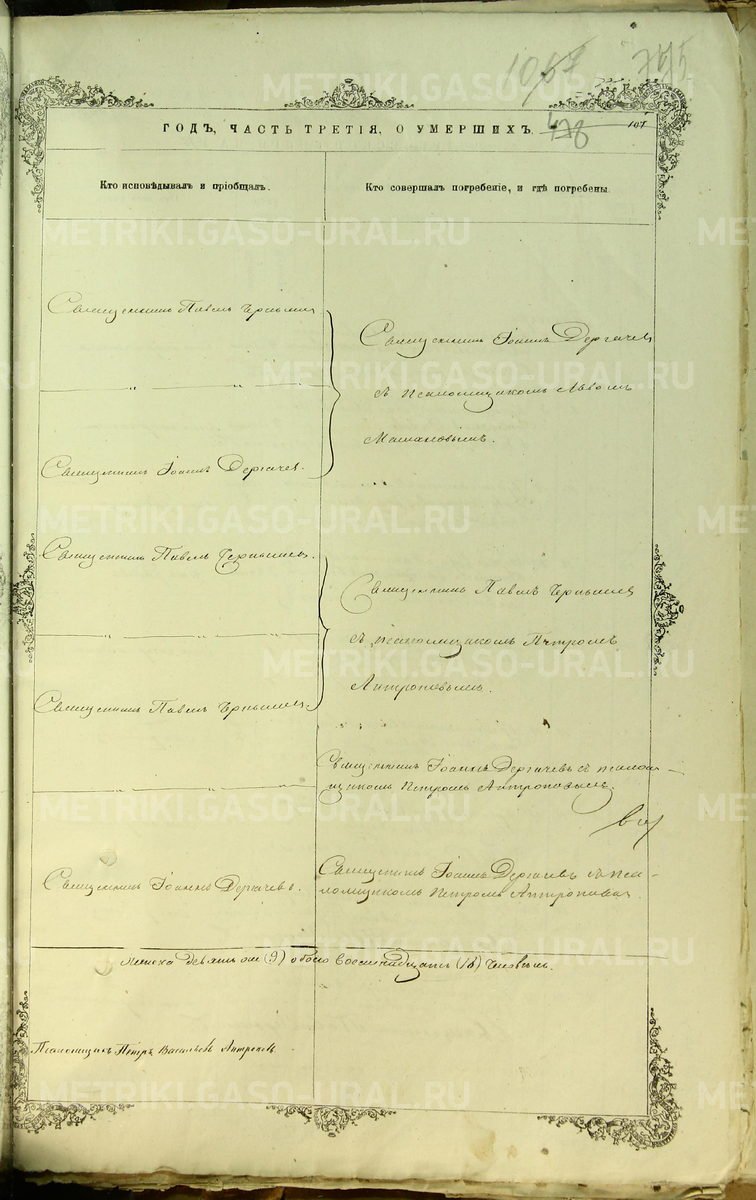 1067 745
ГОДЪ, ЧАСТЬ ТРЕТІЯ, О УМЕРШИХЪ. 478 107
Кто исповѣдывалъ и пріобщалъ.
Кто совершалъ погребеніе, и гдѣ погребены.
Священникъ Павелъ Чернышев
Священникъ Іоаннъ Дергачев.
Священникъ Іоаннъ Дергачев
съ псаломщикомъ Львомъ
Машановымъ.
Священникъ Павелъ Чернышев.
Священникъ Павелъ Чернышев
Священникъ Павелъ Чернышев
съ псаломщикомъ Петромъ
Антроповымъ.
Священникъ Іоаннъ Дергачевъ съ псалом-
щикомъ Петромъ Антроповымъ.
Священникъ Іоаннъ Дергачевъ.
Священникъ Іоаннъ Дергачевъ съ пса-
ломщикомъ Петромъ Антроповым
женска девять (9) обоего восемнадцать (18) человѣкъ.
Псаломщикъ Петръ Васильевъ Антропов.
METRIKI.GASO-URAL.RU